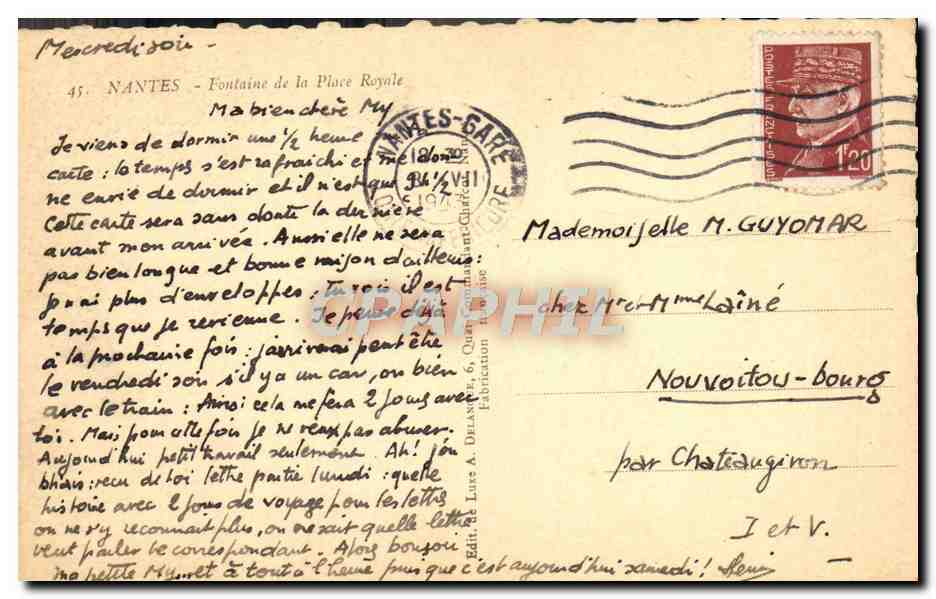 Mercredi soir -
45. NANTES - Fontaine de la Place Royale
Ma bien chère My
Je viens de dormir une 1/2 heure
carte : le temps s'est rafraîchi et me don
ne envie de dormir et il n'est que 8h 1/2
Cette carte sera sans doute la dernière
avant mon arrivée. Aussi elle ne sera
pas bien longue et bonne raison d'ailleurs :
je n'ai plus d'enveloppes : Tu vois il est
temps que je revienne. Je pense déjà
à la prochaine fois : j'arriverai peut être
le vendredi soir s'il y a un car, ou bien
avec le train : Ainsi cela me fera 2 jours avec
toi. Mais pour cette fois je ne veux pas abuser.
Aujourd'hui petit travail seulement. Ah! j'ou
bliais : recu de toi lettre partie lundi : quelle
histoire avec 2 jours de voyage pour les lettres
on ne s'y reconnait plus, on ne sait quelle lettre
veut parler le correspondant. Alors bonsoir
ma petite My et à tout à l'heure puisque c'est aujourd'hui samedi!
Edit. de Luxe A. DELANOE, 6, Quai Commandant-Charcot, Nan
Fabrication Française
NANTES-GARE
18 30
VII
POSTES FRANÇAISES
1F20
Mademoiselle M. GUYOMAR
chez Mr et Mme Laîné
Nouvoitou-bourg
par Chateaugiron
I et V.
CPAPHIL